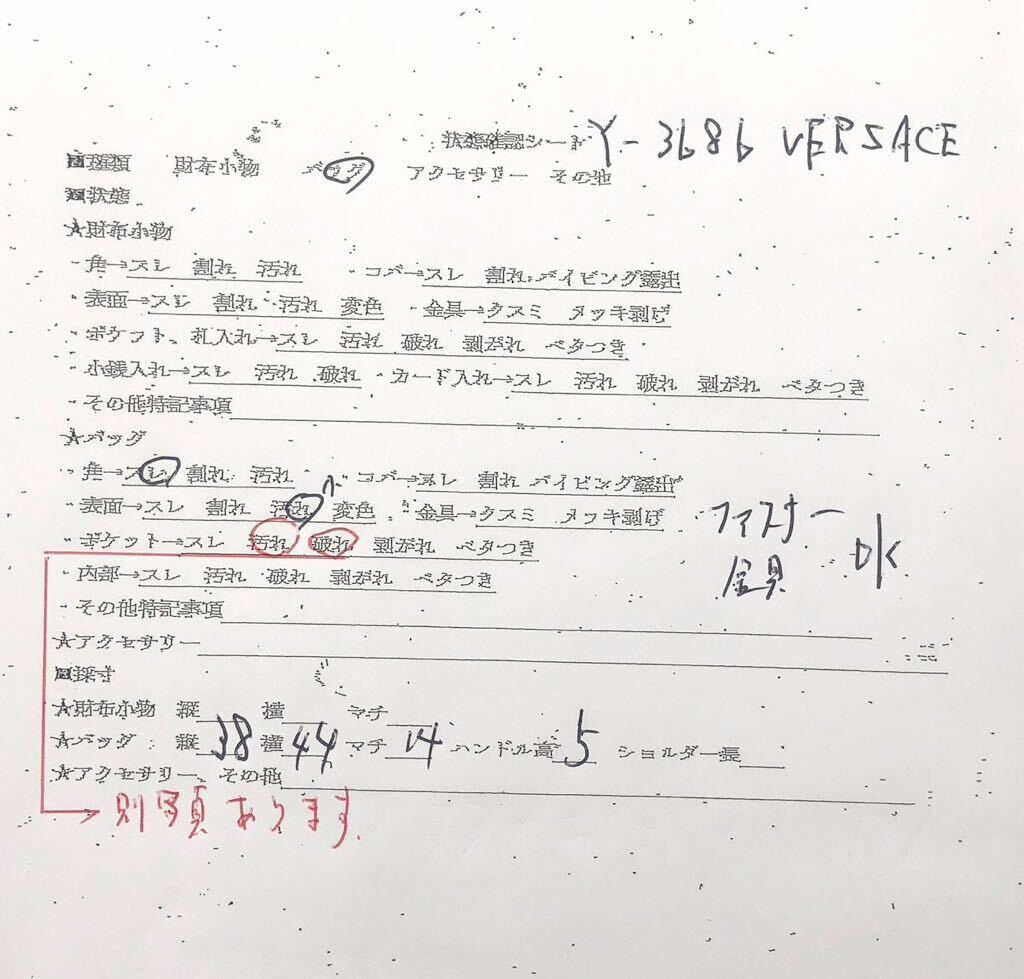 状態確認シート Y-3686 VERSACE
■種類 財布小物 バッグ アクセサリー その他
■状態
★財布小物
・角→スレ 割れ 汚れ ・コバ→スレ 割れ パイピング露出
・表面→スレ 割れ 汚れ 変色 ・金具→クスミ メッキ剥げ
・ポケット、札入れ→スレ 汚れ 破れ 剥がれ ベタつき
・小銭入れ→スレ 汚れ 破れ ・カード入れ→スレ 汚れ 破れ 剥がれ ベタつき
・その他特記事項
★バッグ
・角→スレ 割れ 汚れ ・コバ→スレ 割れ パイピング露出
・表面→スレ 割れ 汚れ 小 変色 ・金具→クスミ メッキ剥げ ファスナー
・ポケット→スレ 汚れ 破れ 剥がれ ベタつき OK
・内部→スレ 汚れ 破れ 剥がれ ベタつき 金具
・その他特記事項
★アクセサリー
■採寸
★財布小物 縦 横 マチ
★バッグ 縦 38 横 44 マチ 14 ハンドル高 5 ショルダー長
★アクセサリー、その他
別写真あります